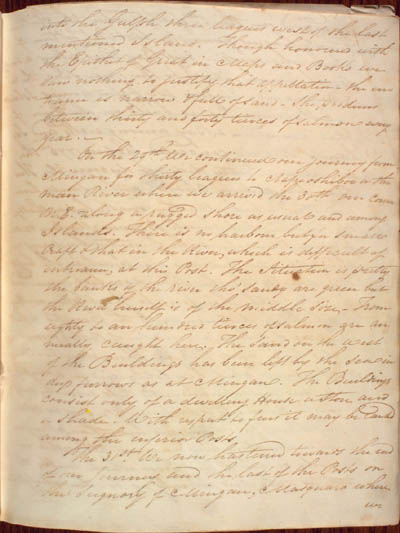 into the Gulph three leagues west of the last
mentioned Island. Though honoured with
the Epithet of Great in Maps and Books we
saw nothing to justify that appellation the en
trance is narrow & full of sand - She produces
between thirty and forty tierces of salmon every
year. —
On the 29th We continued our journey from
Mingan for thirty leagues to Napeoshiboo the
main River where we arrived the 30th our Course
N.E. along a rugged shore as usual and among
Islands. There is no harbour but for smaller
Craft & that in the River, which is difficult of
entrance, at this Post. The Situation is pretty
the banks of the river tho' sandy are green but
the River itself is of the middle size. - From
eighty to an hundred tierces of salmon are an
nually caught here. The Sand on the west
of the Buildings has been left by the sea in
deep furrows as at Mingan. The Buildings
consist only of a dwelling House a Store and
a Shade. With respect to furs it may be ranked
among the inferior Posts.
The 31st We now hastened towards the end
of our journey and the last of the Posts on
the Seignory of Mingan, Masquaro where
we